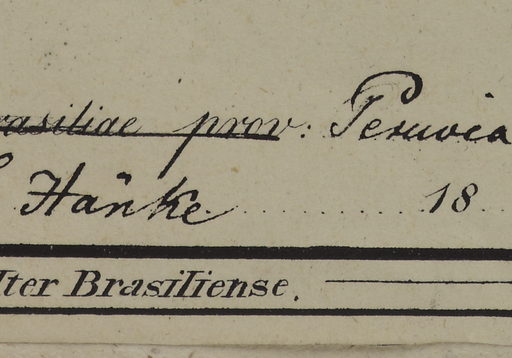 rasiliae prov: Peruvia
Hänke. 18
Iter Brasiliense.